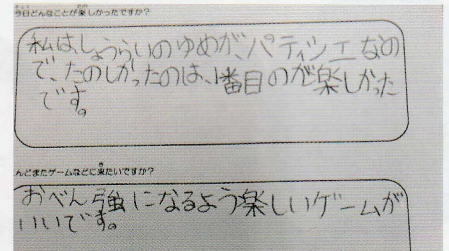 今日どんなことが楽しかったですか?
私は、しょうらいのゆめが、パティシエなの
で、たのしかったのは、1番目のが楽しかった
です。
んどまたゲームなどに来たいですか?
おべん強になるよう楽しいゲームが
いいです。